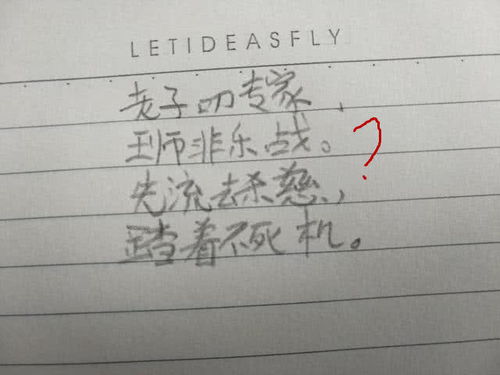 LETIDEASFLY
老子叨专家,
王师非乐战。
失流去杀慈,
踏着不死机。
?